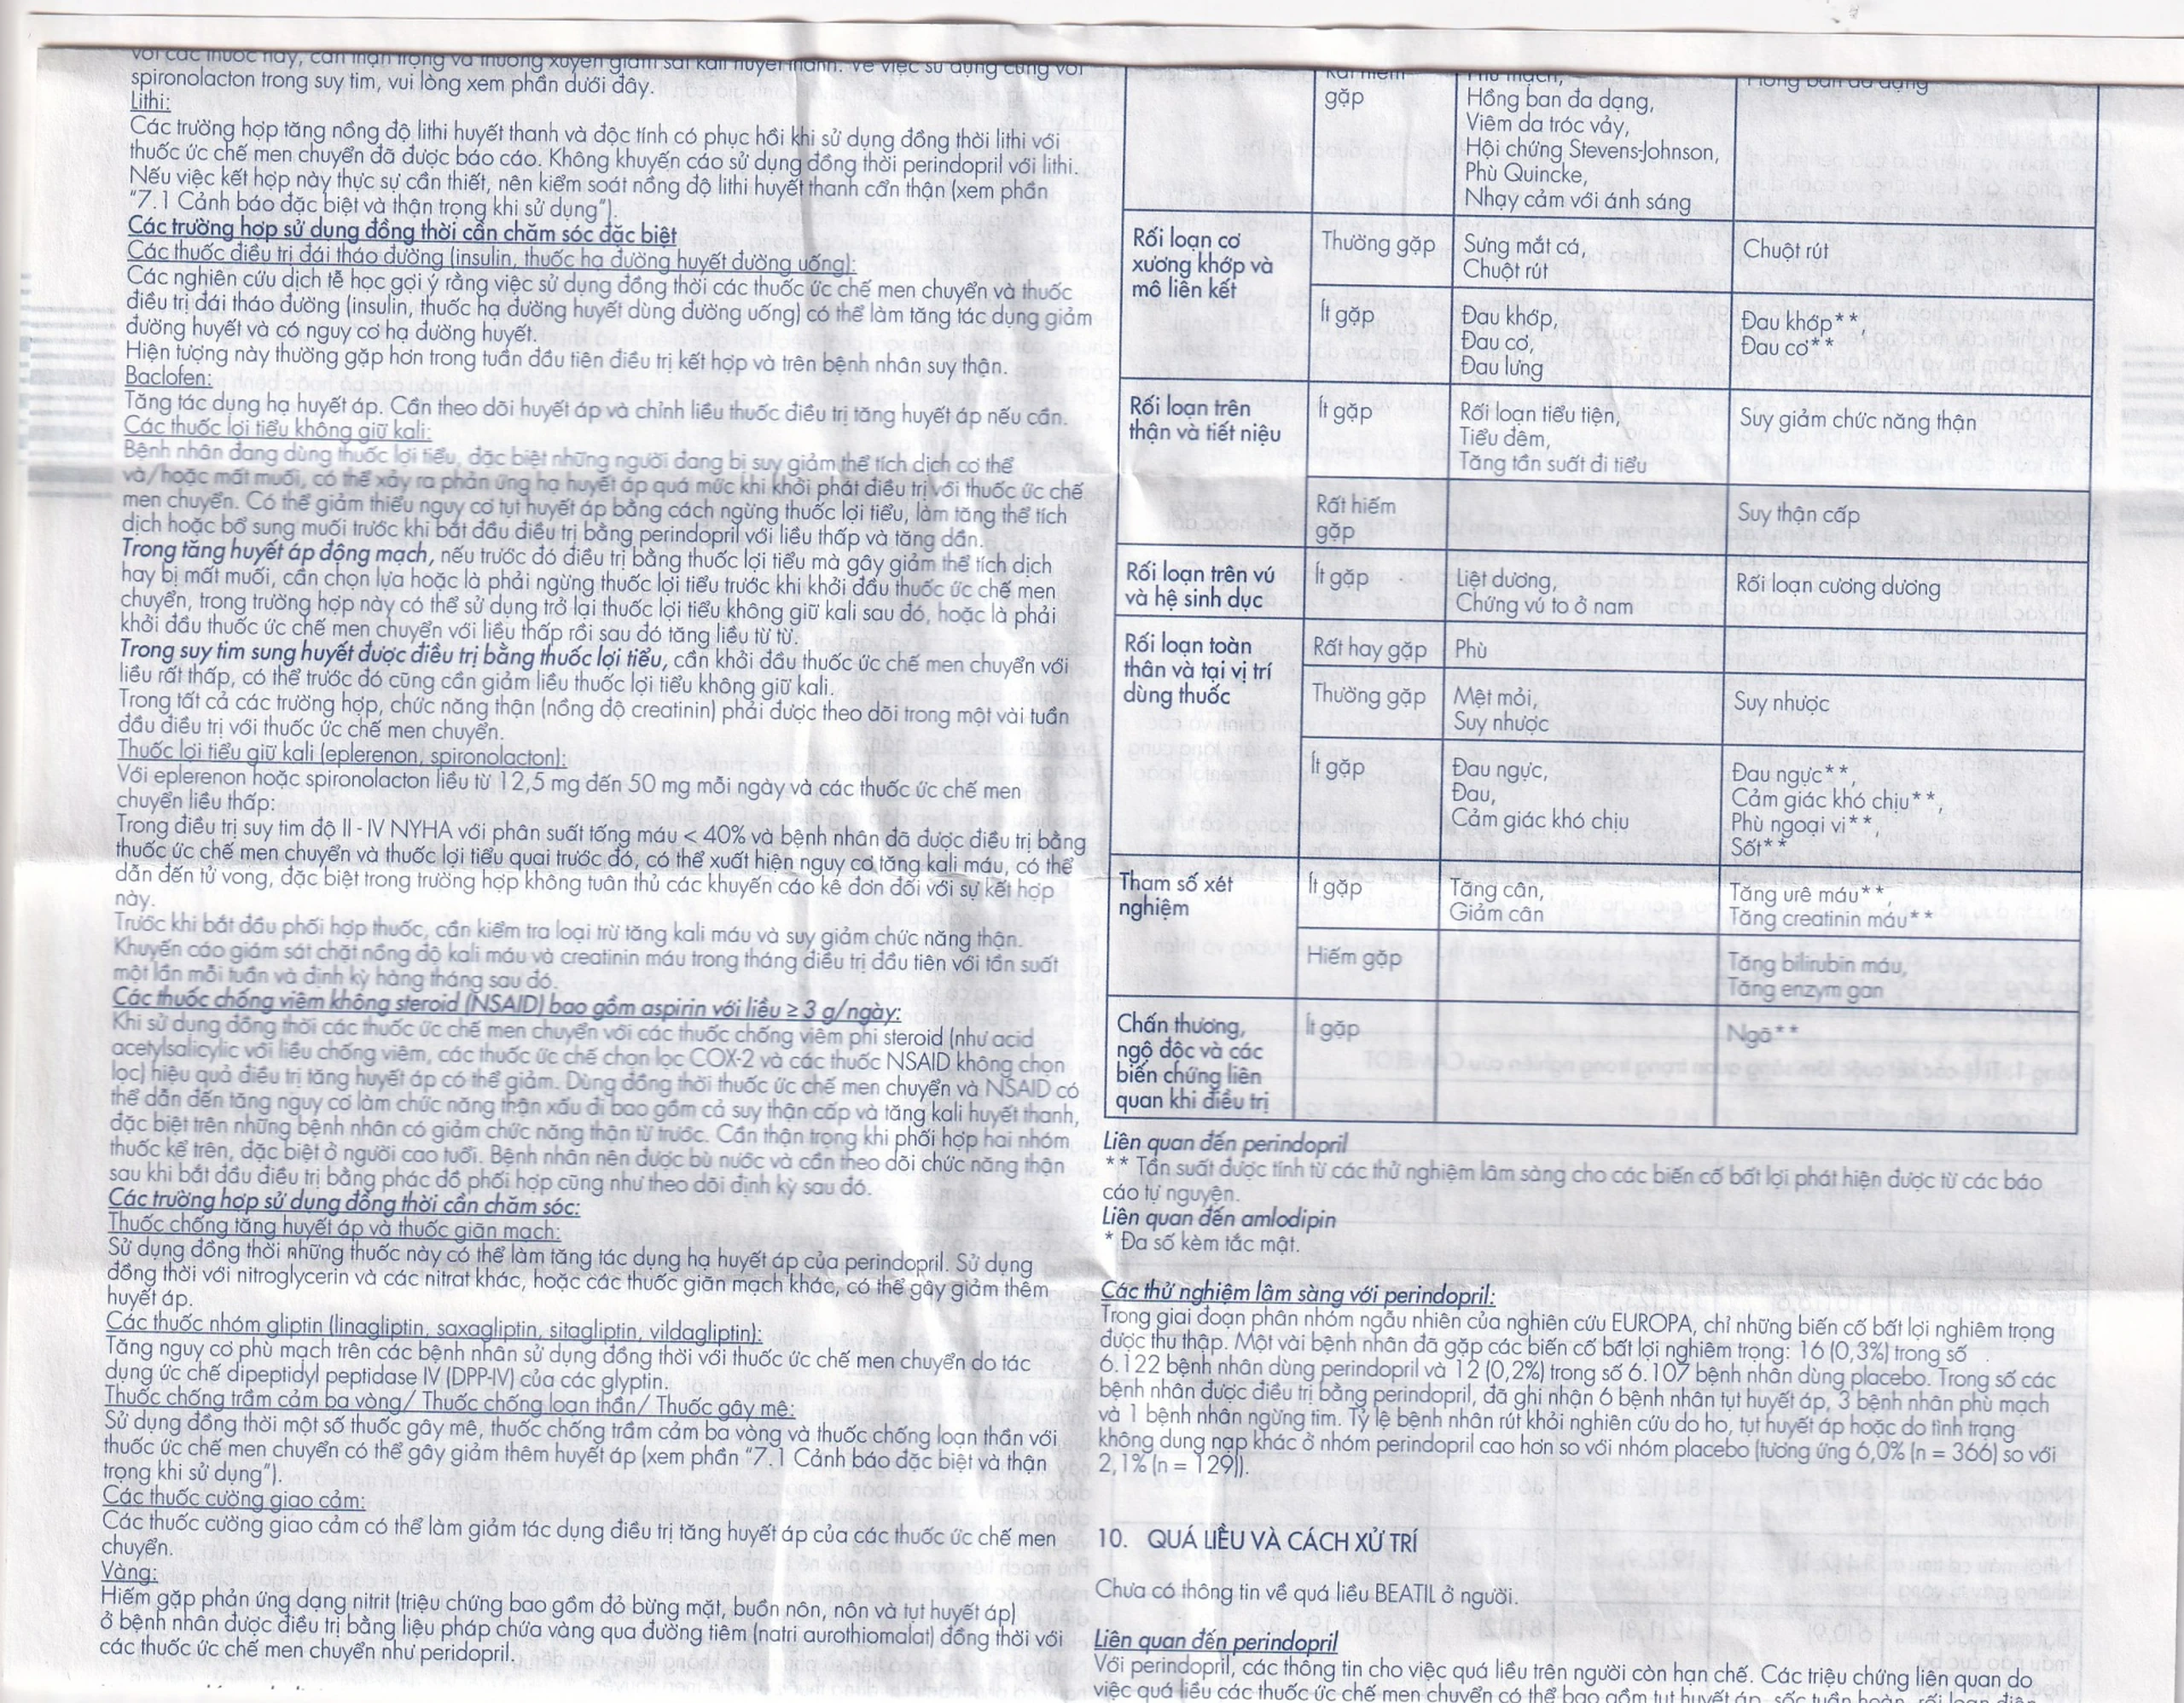 với các thuốc này, cần thận trọng và thường xuyên giám sát kali huyết thanh. Về việc sử dụng cùng với
spironolacton trong suy tim, vui lòng xem phần dưới đây.
Lithi:
Các trường hợp tăng nồng độ lithi huyết thanh và độc tính có phục hồi khi sử dụng đồng thời lithi với
thuốc ức chế men chuyển đã được báo cáo. Không khuyến cáo sử dụng đồng thời perindopril với lithi.
Nếu việc kết hợp này thực sự cần thiết, nên kiểm soát nồng độ lithi huyết thanh cẩn thận (xem phần
"7.1 Cảnh báo đặc biệt và thận trọng khi sử dụng").
Các trường hợp sử dụng đồng thời cần chăm sóc đặc biệt
Các thuốc điều trị đái tháo đường (insulin, thuốc hạ đường huyết đường uống):
Các nghiên cứu dịch tễ học gợi ý rằng việc sử dụng đồng thời các thuốc ức chế men chuyển và thuốc
điều trị đái tháo đường (insulin, thuốc hạ đường huyết dùng đường uống) có thể làm tăng tác dụng giảm
đường huyết và có nguy cơ hạ đường huyết.
Hiện tượng này thường gặp hơn trong tuần đầu tiên điều trị kết hợp và trên bệnh nhân suy thận.
Baclofen:
Tăng tác dụng hạ huyết áp. Cần theo dõi huyết áp và chỉnh liều thuốc điều trị tăng huyết áp nếu cần.
Các thuốc lợi tiểu không giữ kali:
Bệnh nhân đang dùng thuốc lợi tiểu, đặc biệt những người đang bị suy giảm thể tích dịch cơ thể
và/hoặc mất muối, có thể xảy ra phản ứng hạ huyết áp quá mức khi khởi phát điều trị với thuốc ức chế
men chuyển. Có thể giảm thiểu nguy cơ tụt huyết áp bằng cách ngừng thuốc lợi tiểu, làm tăng thể tích
dịch hoặc bổ sung muối trước khi bắt đầu điều trị bằng perindopril với liều thấp và tăng dần.
Trong tăng huyết áp động mạch, nếu trước đó điều trị bằng thuốc lợi tiểu mà gây giảm thể tích dịch
hay bị mất muối, cần chọn lựa hoặc là phải ngừng thuốc lợi tiểu trước khi khởi đầu thuốc ức chế men
chuyển, trong trường hợp này có thể sử dụng trở lại thuốc lợi tiểu không giữ kali sau đó, hoặc là phải
khởi đầu thuốc ức chế men chuyển với liều thấp rồi sau đó tăng liều từ từ.
Trong suy tim sung huyết được điều trị bằng thuốc lợi tiểu, cần khởi đầu thuốc ức chế men chuyển với
liều rất thấp, có thể trước đó cũng cần giảm liều thuốc lợi tiểu không giữ kali.
Trong tất cả các trường hợp, chức năng thận (nồng độ creatinin) phải được theo dõi trong một vài tuần
đầu điều trị với thuốc ức chế men chuyển.
Thuốc lợi tiểu giữ kali (eplerenon, spironolacton):
Với eplerenon hoặc spironolacton liều từ 12,5 mg đến 50 mg mỗi ngày và các thuốc ức chế men
chuyển liều thấp:
Trong điều trị suy tim độ II - IV NYHA với phân suất tống máu < 40% và bệnh nhân đã được điều trị bằng
thuốc ức chế men chuyển và thuốc lợi tiểu quai trước đó, có thể xuất hiện nguy cơ tăng kali máu, có thể
dẫn đến tử vong, đặc biệt trong trường hợp không tuân thủ các khuyến cáo kê đơn đối với sự kết hợp
này.
Trước khi bắt đầu phối hợp thuốc, cần kiểm tra loại trừ tăng kali máu và suy giảm chức năng thận.
Khuyến cáo giám sát chặt nồng độ kali máu và creatinin máu trong tháng điều trị đầu tiên với tần suất
một lần mỗi tuần và định kỳ hàng tháng sau đó.
Các thuốc chống viêm không steroid (NSAID) bao gồm aspirin với liều ≥ 3 g/ngày:
Khi sử dụng đồng thời các thuốc ức chế men chuyển với các thuốc chống viêm phi steroid (như acid
acetylsalicylic với liều chống viêm, các thuốc ức chế chọn lọc COX-2 và các thuốc NSAID không chọn
lọc) hiệu quả điều trị tăng huyết áp có thể giảm. Dùng đồng thời thuốc ức chế men chuyển và NSAID có
thể dẫn đến tăng nguy cơ làm chức năng thận xấu đi bao gồm cả suy thận cấp và tăng kali huyết thanh,
đặc biệt trên những bệnh nhân có giảm chức năng thận từ trước. Cần thận trọng khi phối hợp hai nhóm
thuốc kể trên, đặc biệt ở người cao tuổi. Bệnh nhân nên được bù nước và cần theo dõi chức năng thận
sau khi bắt đầu điều trị bằng phác đồ phối hợp cũng như theo dõi định kỳ sau đó.
Các trường hợp sử dụng đồng thời cần chăm sóc:
Thuốc chống tăng huyết áp và thuốc giãn mạch:
Sử dụng đồng thời những thuốc này có thể làm tăng tác dụng hạ huyết áp của perindopril. Sử dụng
đồng thời với nitroglycerin và các nitrat khác, hoặc các thuốc giãn mạch khác, có thể gây giảm thêm
huyết áp.
Các thuốc nhóm gliptin (linagliptin, saxagliptin, sitagliptin, vildagliptin):
Tăng nguy cơ phù mạch trên các bệnh nhân sử dụng đồng thời với thuốc ức chế men chuyển do tác
dụng ức chế dipeptidyl peptidase IV (DPP-IV) của các glyptin.
Thuốc chống trầm cảm ba vòng/ Thuốc chống loạn thần/ Thuốc gây mê:
Sử dụng đồng thời một số thuốc gây mê, thuốc chống trầm cảm ba vòng và thuốc chống loạn thần với
thuốc ức chế men chuyển có thể gây giảm thêm huyết áp (xem phần "7.1 Cảnh báo đặc biệt và thận
trọng khi sử dụng").
Các thuốc cường giao cảm:
Các thuốc cường giao cảm có thể làm giảm tác dụng điều trị tăng huyết áp của các thuốc ức chế men
chuyển.
Vàng:
Hiếm gặp phản ứng dạng nitrit (triệu chứng bao gồm đỏ bừng mặt, buồn nôn, nôn và tụt huyết áp)
ở bệnh nhân được điều trị bằng liệu pháp chứa vàng qua đường tiêm (natri aurothiomalat) đồng thời với
các thuốc ức chế men chuyển như peridopril.
Rất hiếm
gặp
Phù mạch,
Hồng ban đa dạng,
Viêm da tróc vảy,
Hội chứng Stevens-Johnson,
Phù Quincke,
Nhạy cảm với ánh sáng
Hồng ban đa dạng
Rối loạn cơ
xương khớp và
mô liên kết
Thường gặp
Sưng mắt cá,
Chuột rút
Chuột rút
Ít gặp
Đau khớp,
Đau cơ,
Đau lưng
Đau khớp**,
Đau cơ**
Rối loạn trên
thận và tiết niệu
Ít gặp
Rối loạn tiểu tiện,
Tiểu đêm,
Tăng tần suất đi tiểu
Suy giảm chức năng thận
Rất hiếm
gặp
Suy thận cấp
Rối loạn trên vú
và hệ sinh dục
Ít gặp
Liệt dương,
Chứng vú to ở nam
Rối loạn cương dương
Rối loạn toàn
thân và tại vị trí
dùng thuốc
Rất hay gặp
Phù
Thường gặp
Mệt mỏi,
Suy nhược
Suy nhược
Ít gặp
Đau ngực,
Đau,
Cảm giác khó chịu
Đau ngực**,
Cảm giác khó chịu**,
Phù ngoại vi**,
Sốt**
Tham số xét
nghiệm
Ít gặp
Tăng cân,
Giảm cân
Tăng urê máu**,
Tăng creatinin máu**
Hiếm gặp
Tăng bilirubin máu,
Tăng enzym gan
Chấn thương,
ngộ độc và các
biến chứng liên
quan khi điều trị
Ít gặp
Ngã**
Liên quan đến perindopril
** Tần suất được tính từ các thử nghiệm lâm sàng cho các biến cố bất lợi phát hiện được từ các báo
cáo tự nguyện.
Liên quan đến amlodipin
* Đa số kèm tắc mật.
Các thử nghiệm lâm sàng với perindopril:
Trong giai đoạn phân nhóm ngẫu nhiên của nghiên cứu EUROPA, chỉ những biến cố bất lợi nghiêm trọng
được thu thập. Một vài bệnh nhân đã gặp các biến cố bất lợi nghiêm trọng: 16 (0,3%) trong số
6.122 bệnh nhân dùng perindopril và 12 (0,2%) trong số 6.107 bệnh nhân dùng placebo. Trong số các
bệnh nhân được điều trị bằng perindopril, đã ghi nhận 6 bệnh nhân tụt huyết áp, 3 bệnh nhân phù mạch
và 1 bệnh nhân ngừng tim. Tỷ lệ bệnh nhân rút khỏi nghiên cứu do ho, tụt huyết áp hoặc do tình trạng
không dung nạp khác ở nhóm perindopril cao hơn so với nhóm placebo (tương ứng 6,0% (n = 366) so với
2,1% (n = 129)).
10. QUÁ LIỀU VÀ CÁCH XỬ TRÍ
Chưa có thông tin về quá liều BEATIL ở người.
Liên quan đến perindopril
Với perindopril, các thông tin cho việc quá liều trên người còn hạn chế. Các triệu chứng liên quan do
việc quá liều các thuốc ức chế men chuyển có thể bao gồm tụt huyết áp, sốc tuần hoàn, rối loạn điện